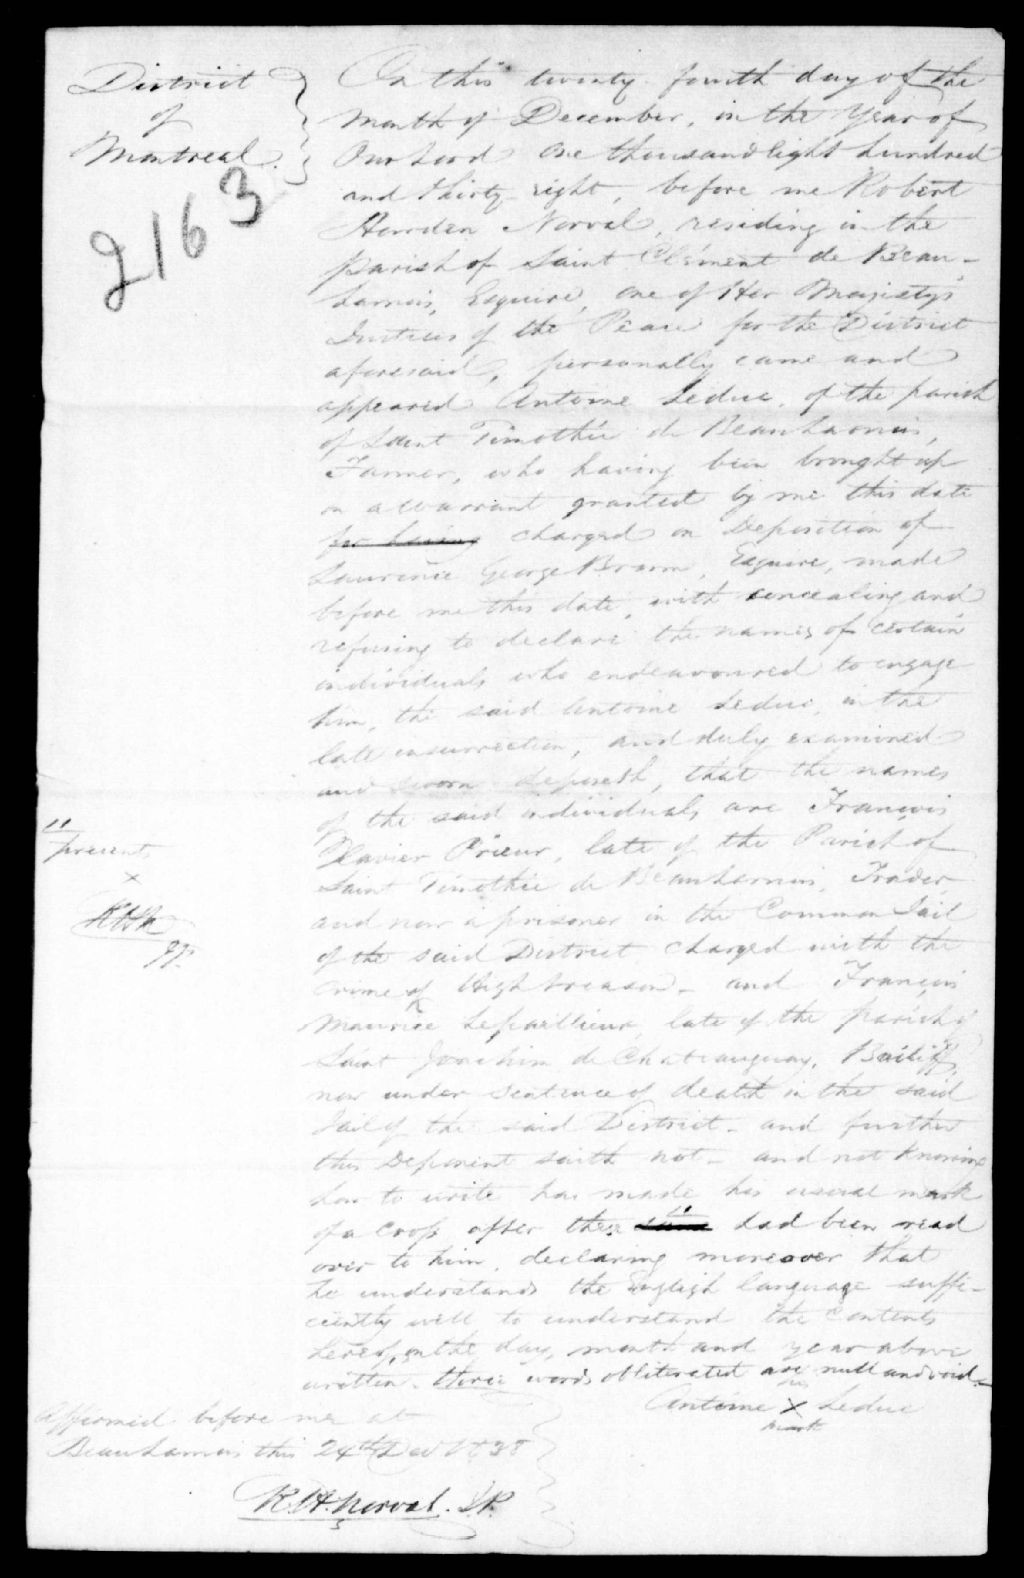 District
of
Montreal.
2163
On this twenty fourth day of the
month of December, in the Year of
Our Lord One thousand eight hundred
and thirty-eight, before me Robert
Howden Norval, residing in the
Parish of Saint Clément de Beau-
harnois, Esquire, one of Her Majesty's
Justices of the Peace for the District
aforesaid, personally came and
appeared Antoine Leduc, of the parish
of Saint Timothée de Beauharnois,
Farmer, who having been brought up
on a warrant granted by me this date
for having charged on Deposition of
Laurence George Brown, Esquire, made
before me this date, with concealing and
refusing to declare the names of certain
individuals who endeavoured to engage
him, the said Antoine Leduc, in the
late insurrection, and duly examined
and sworn deposeth, that the names
of the said individuals are François
Xavier Prieur, late of the Parish of
Saint Timothée de Beauharnois, Trader,
and now a prisoner in the Common Jail
of the said District charged with the
crime of High treason - and François
Maurice Lepaillieur, late of the parish of
Saint Joachim de Chateauguay, Bailiff,
now under sentence of death in the said
Jail of the said District - and further
this Deponent saith not - and not knowing
how to write has made his usual mark
of a cross, after these had been read
over to him, declaring moreover that
he understands the English language suffi-
ciently well to understand the contents
hereof, on the day, month and year above
written - three words obliterated are null and void -
"
presents
x
Antoine x Leduc
his
mark
Affirmed before me at
Beauharnois this 24th Dec 1838
R. H. Norval. J.P.